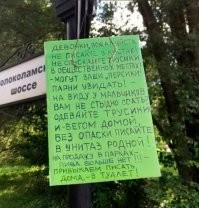 ВОЛОКОЛАМСКОЕ
ШОССЕ
ДЕВОЧКИ,
НЕ ПИСАЙТЕ
НЕ СПУСКАЙТЕ ТРУСИКИ
В ОБЩЕСТВЕННОМ МЕСТЕ
МОГУТ ВАШИ „ПЕРСИКИ"
ПАРНИ УВИДАТЬ!
НА ВИДУ У МАЛЬЧИКОВ
ВАМ НЕ СТЫДНО СРАТЬ
ОДЕВАЙТЕ ТРУСИКИ
И БЕГОМ ДОМОЙ,
БЕЗ ОПАСКИ ПИСАЙТЕ
В УНИТАЗ РОДНОЙ!
НА ПРОДАЖУ В ПАРКАХ
ПИВА БОЛЬШЕ НЕТ!!! –
ПРИВЫКАЕМ ПИСАТЬ
ДОМА, – В ТУАЛЕТ!